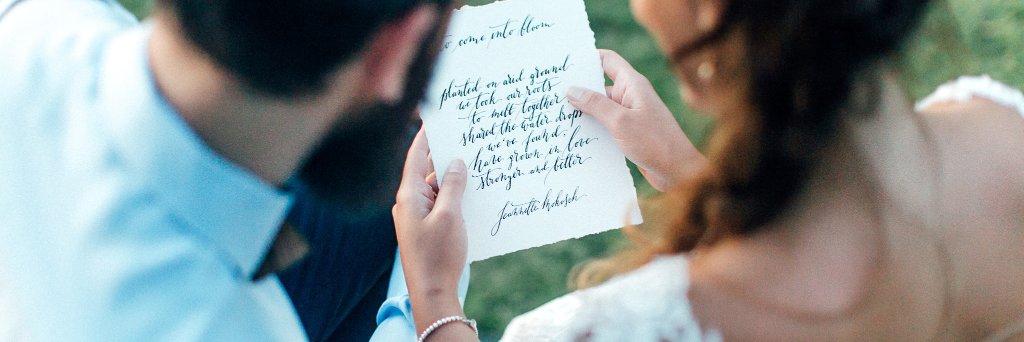 to come into bloom
planted on arid ground
we took our roots
to melt together
shared the water drops
we've found.
have grown in love
stronger and better
Jeannette Mokosch